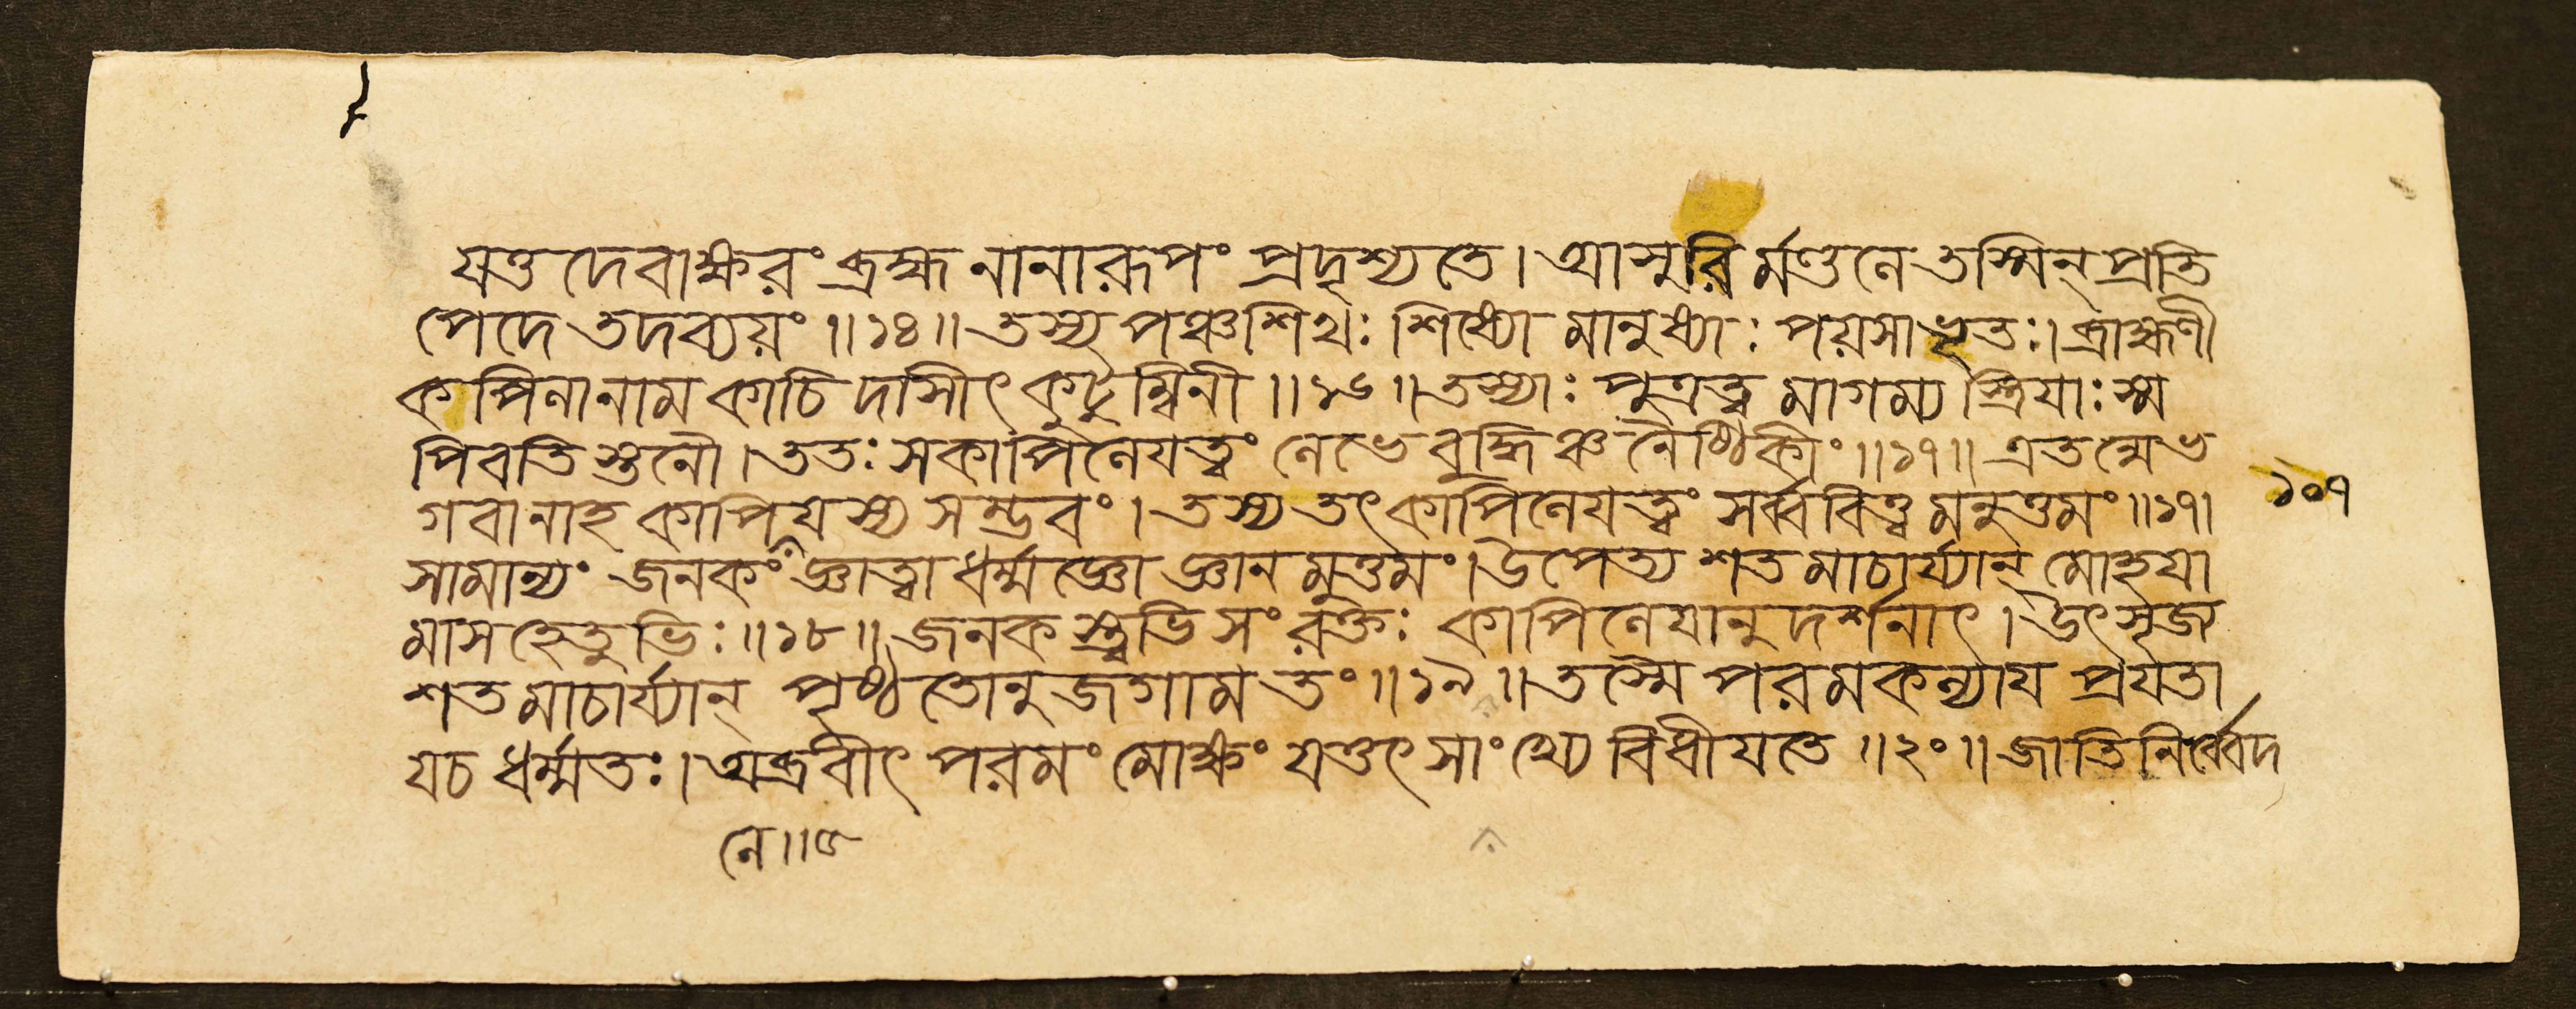 যত্তদেবাক্ষরং ব্রহ্ম নানারূপং প্রদৃশ্যতে। আসুরির্মণ্ডলে তস্মিন্ প্রতি
পেদে তদব্যয়ং ॥১৪॥ তস্য পঞ্চশিখঃ শিষ্যো মানুষ্যাঃ পয়সা ভৃতঃ। ব্রাহ্মণী
কপিলা নাম কাচিদাসীৎ কুটুম্বিনী ॥১৬॥ তস্যাঃ পুত্রত্বমাগম্য স্ত্রিযাঃ স্ম
পিবতি স্তনৌ। ততঃ স কাপিলেযত্বং লেভে বুদ্ধিঞ্চ নৈষ্ঠিকীং ॥১৭॥ এতন্মে ভ
গবানাহ কাপিযস্য সম্ভবং। তস্য তৎ কাপিলেযত্বং সর্ব্ববিত্ত্বমনুত্তমং ॥১৭।
সামান্যং জনকং জ্ঞাত্বা ধর্ম্মজ্ঞো জ্ঞানমুত্তমং। উপেত্য শতমাচার্য্যান্ মোহযা
মাস হেতুভিঃ ॥১৮॥ জনকস্ত্বভিসংরক্তঃ কাপিলেযানুদর্শনাৎ। উৎসৃজ্য
শতমাচার্য্যান্ পৃষ্ঠতোনুজগাম তং ॥১৯॥ তস্মৈ পরমকল্যায প্রযতা
য চ ধর্ম্মতঃ। অব্রবীৎ পরমং মোক্ষং যত্তৎ সাংখ্যে বিধীযতে ॥২০॥ জাতিনির্ব্বেদ
১০৭
লে॥৫